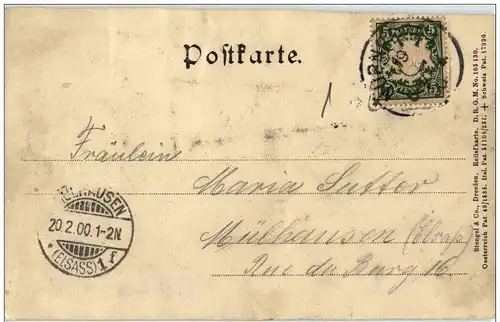 Postkarte.
BAYERN
5 5
Fräulein
Maria Sutter
Mülhausen (Elsass)
Rue du Bourg 16
MÜLHAUSEN
20.2.00.1-2N
* (ELSASS) 1 f
Stengel & Co., Dresden. Reliefkarte. D. R. G. M. No. 103 130.
Oesterreich Pat. 49/1835. Ital. Pat. 51105/231. + Schweiz Pat. 17920.